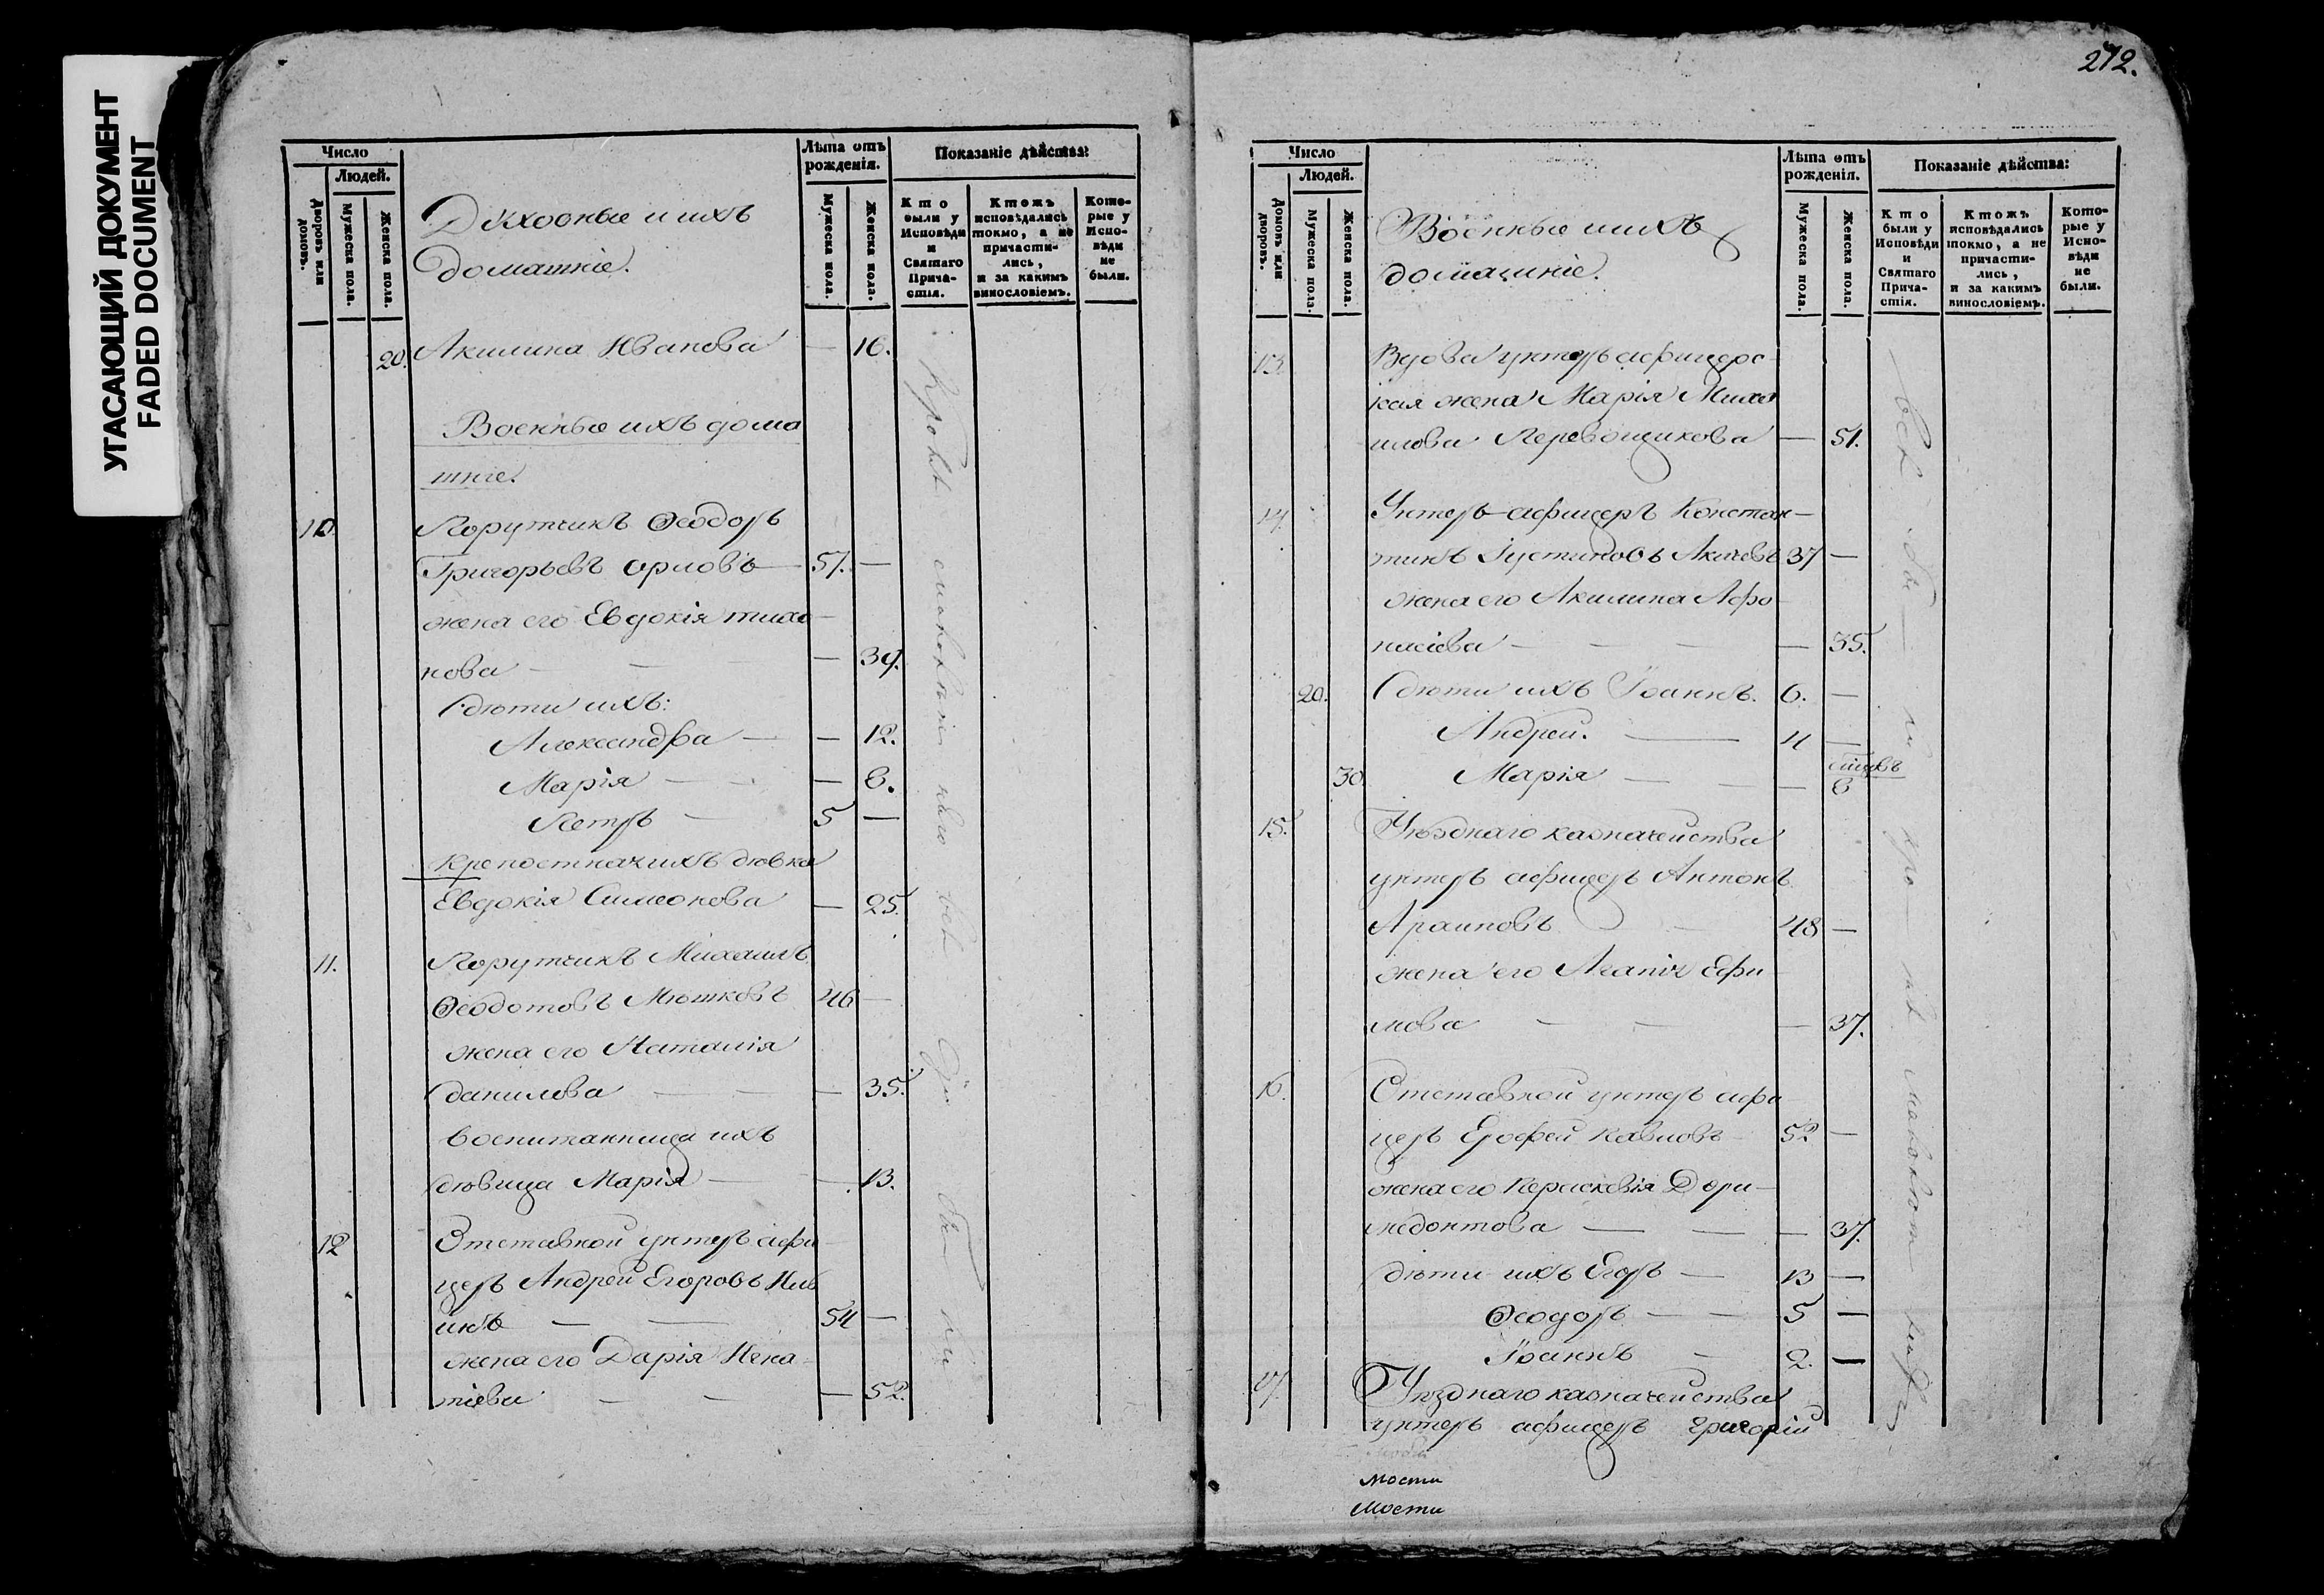 УГАСАЮЩИЙ ДОКУМЕНТ
FADED DOCUMENT
Число
Людей.
Дворовъ или домовъ.
Мужеска пола.
Женска пола.
Духовные и ихъ
домашніе.
Лѣта отъ рожденія.
Мужеска пола.
Женска пола.
Показаніе дѣйства:
Кто были у Исповѣди и Святаго Прича-стія.
Ктожъ исповѣдались токмо, а не причасти-лись, и за какимъ винословіемъ.
Кото-рые у Испо-вѣди не были.
20. Акилина Иванова — 16.
Военные ихъ дома
шніе.
10. Порутчикъ Ѳеодоръ
Григорьевъ Орловъ 57. —
жена его Евдокія Тихо
нова — 39.
дѣти ихъ:
Александра — 12.
Марія — 6.
Петръ 5 —
крепостная ихъ дѣвка
Евдокія Симеонова — 25.
11. Порутчикъ Михаилъ
Ѳеодотовъ Мюшковъ 46 —
жена его Наталія
Данилова — 35.
воспитанница ихъ
дѣвица Марія — 13.
12 Отставной унтеръ афи
церъ Андрей Егоровъ
54 —
жена его Дарія Игна
тіева — 52.
272.
Число
Людей.
Домовъ или дворовъ.
Мужеска пола.
Женска пола.
Военные и ихъ
домашніе.
Лѣта отъ рожденія.
Мужеска пола.
Женска пола.
Показаніе дѣйства:
Кто были у Исповѣди и Святаго Прича-стія.
Ктожъ исповѣдались токмо, а не причасти-лись, и за какимъ винословіемъ.
Кото-рые у Испо-вѣди не были.
13. Вдова унтеръ афицерс
кая жена Марія Миха
илова Перевощикова — 51.
14. Унтеръ-афицеръ Констан-
тинъ Іустиновъ 37 —
жена его Акилина Афо
насіева — 35.
20. дѣти ихъ Іоаннъ. 6. —
Андрей. 4 —
30. Марія — 6
15. Уѣзднаго казначейства
унтеръ афицеръ Антонъ
Араповъ 48 —
жена его Агапія Ефи
мова — 37.
16. Отставной унтеръ афи
церъ Ерофей Павловъ 52 —
жена его Параскевія Дори
медонтова — 37.
дѣти ихъ Егоръ — 13 —
Ѳеодоръ — 5 —
Іоаннъ 2. —
17. Уѣзднаго казначейства
унтеръ афицеръ Григорій
Мости
Мости